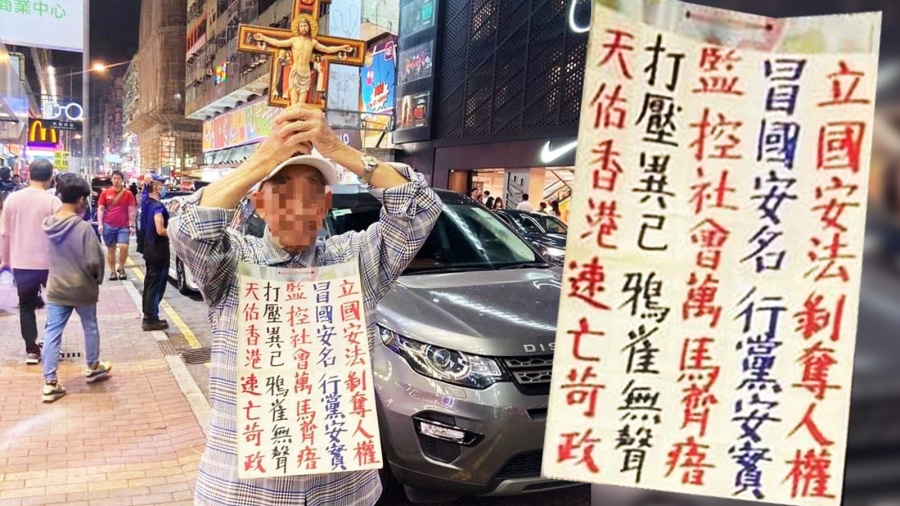 商業中心
立國安法剝奪人權
冒國安名 行黨安實
監控社會萬馬齊瘖
打壓異己 鴉雀無聲
天佑香港 速亡苛政
DIS
立國安法剝奪人權
冒國安名 行黨安實
監控社會萬馬齊瘖
打壓異己 鴉雀無聲
天佑香港速亡苛政